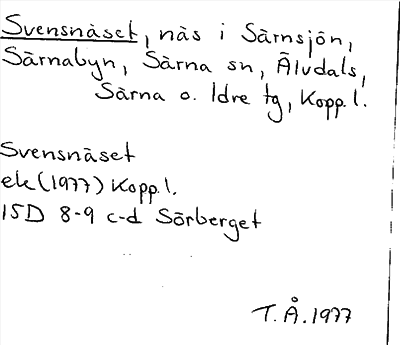 Svensnäset, näs i Särnsjön,
Särnabyn, Särna sn, Älvdals,
Särna o. Idre tg, Kopp.l.
Svensnäset
ek (1977) Kopp.l.
15D 8-9 c-d Sörberget
T.Å. 1977